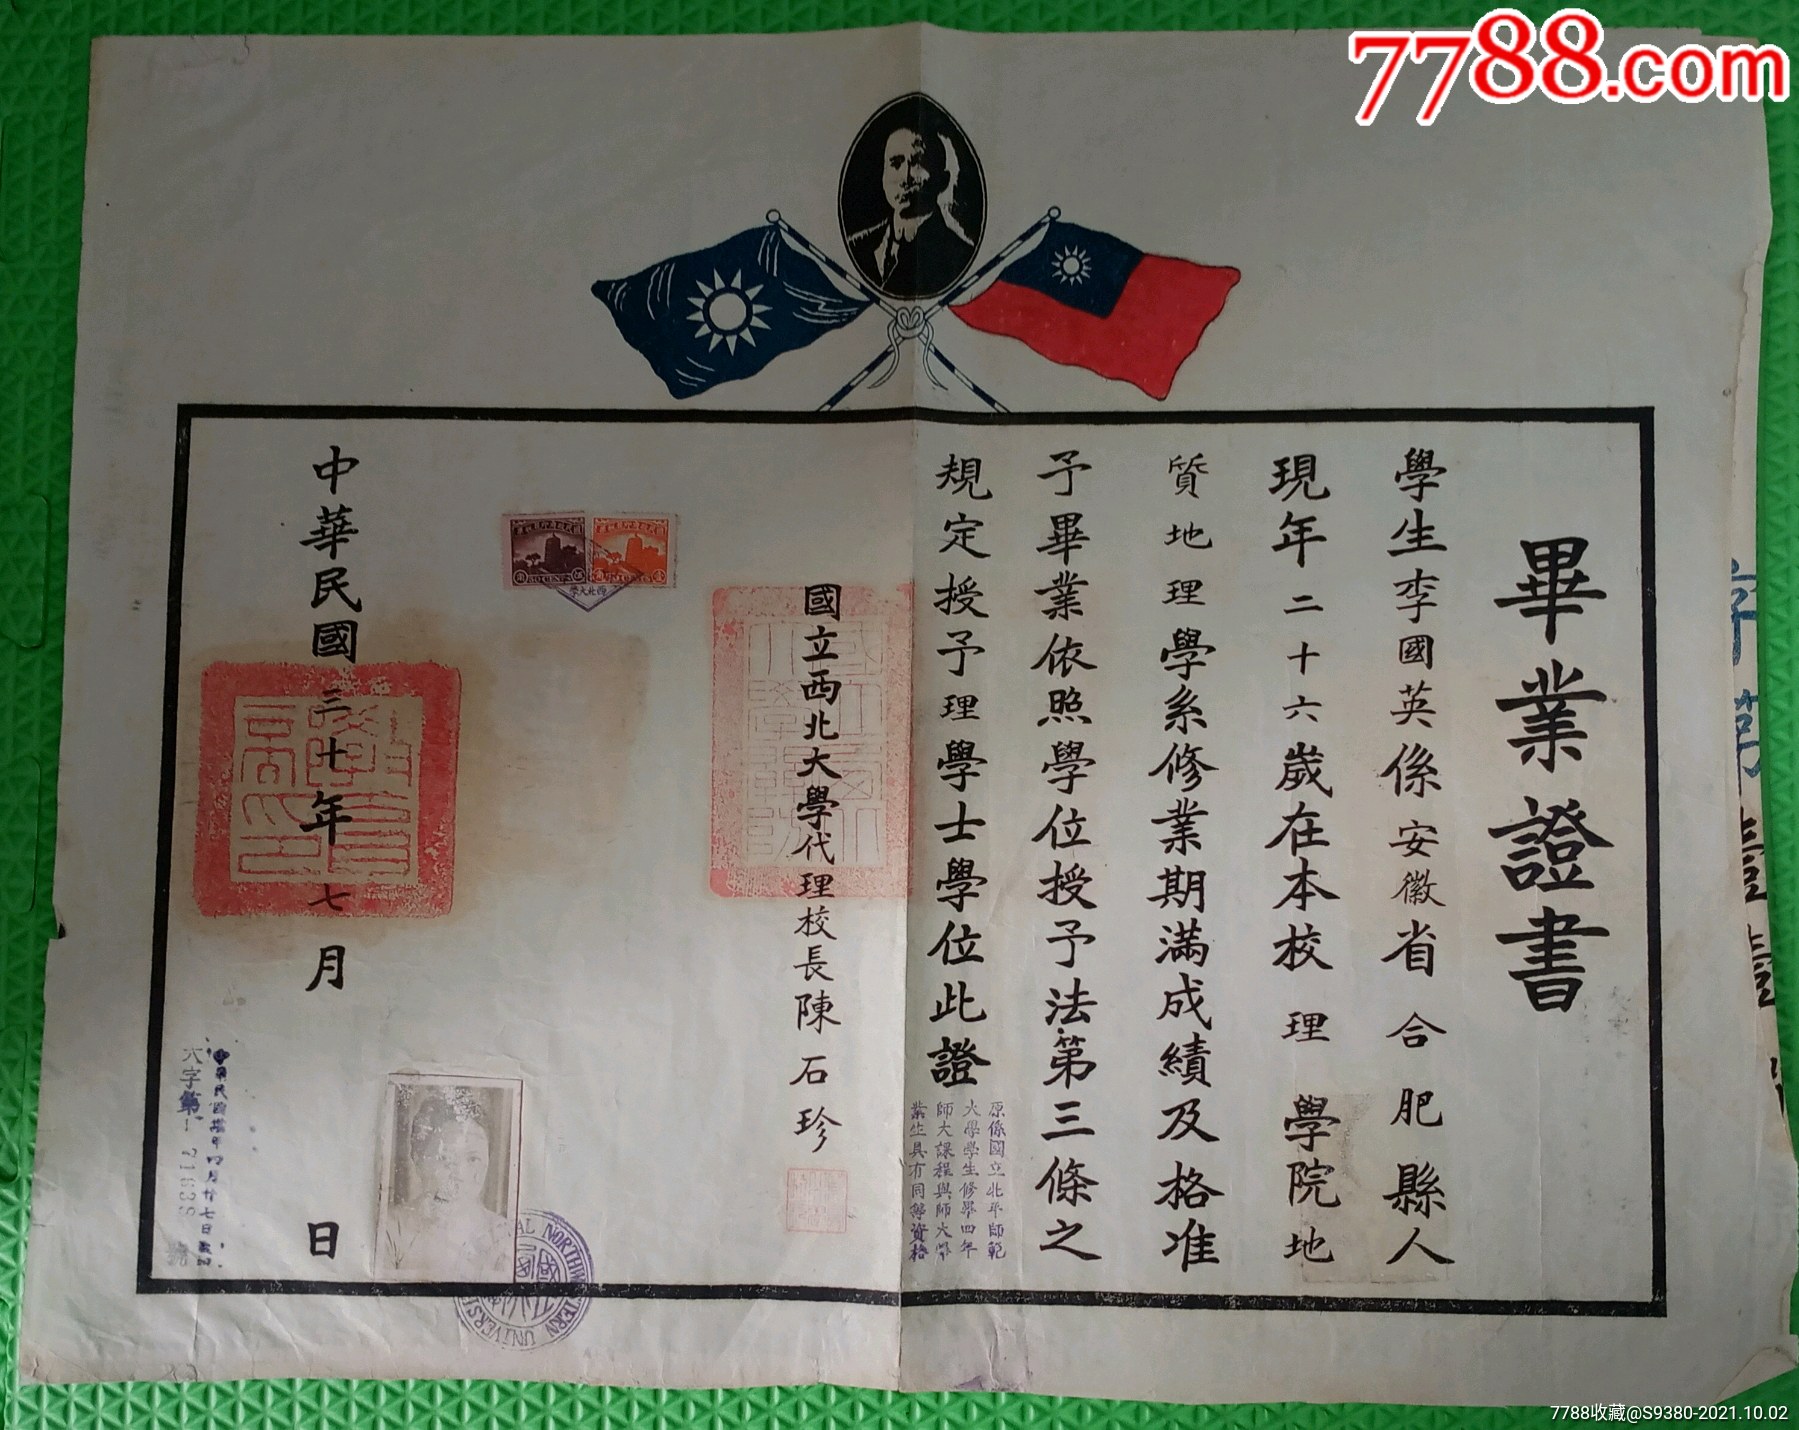 7788.com
畢業證書
學生李國英係安徽省合肥縣人
現年二十六歲在本校理學院地
質地理學系修業期滿成績及格准
予畢業依照學位授予法第三條之
規定授予理學士學位此證
原係國立北平師範
大學學生修畢四年
師大課程與師大畢
業生具有同等資格
國立西北大學代理校長陳石珍
西北大學
50 CENTS
中華民國三十年七月日
NORTHWESTERN UNIVERSITY
大字第 71639 號
7788收藏@S9380-2021.10.02